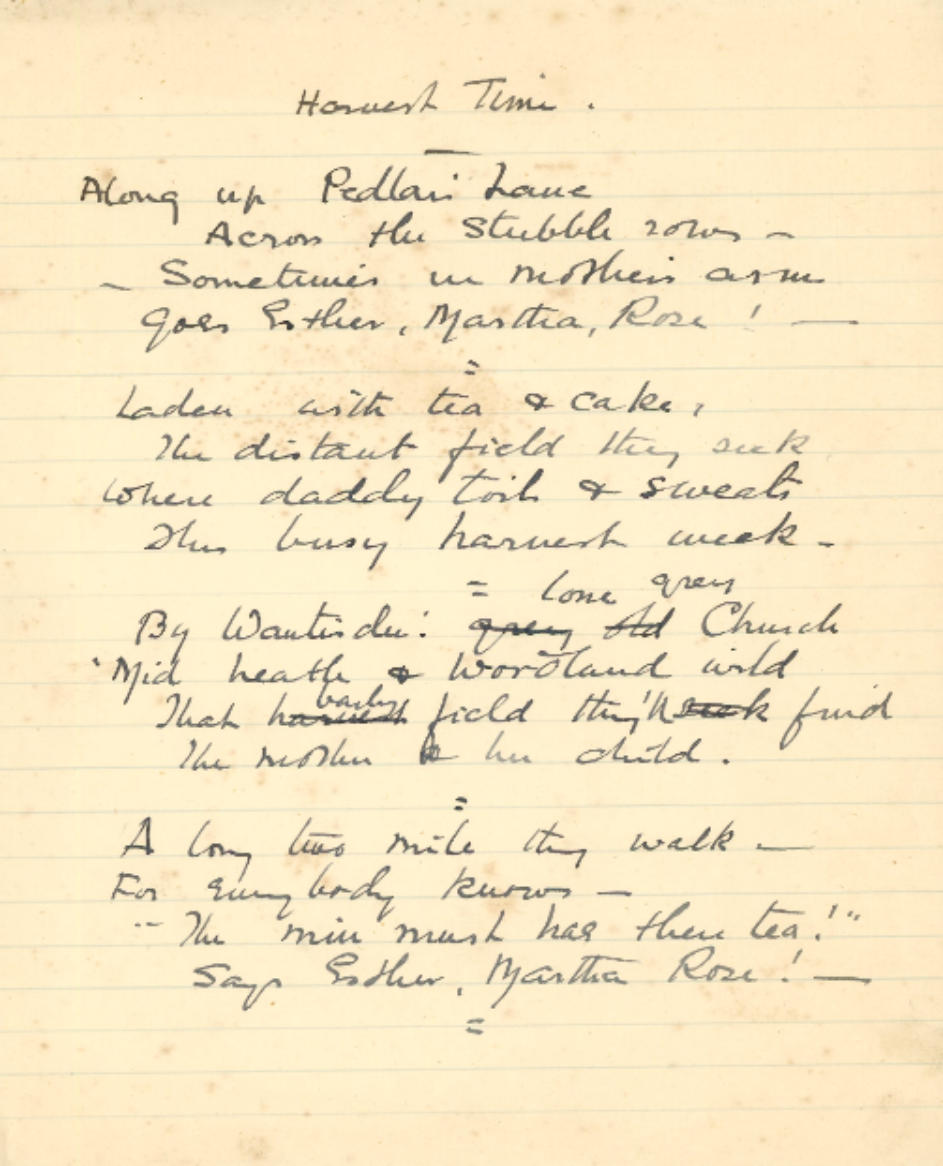 Harvest Time.
Along up Pedlar's Lane
Across the Stubble rows –
– Sometimes in mother's arm
Goes Esther, Martha, Rose! —
Laden with tea & cake,
The distant field they seek
Where daddy toils & sweats
This busy harvest week –
= lone grey
By Wantisden: grey old Church
'Mid heath & Woodland wild
barley
That harvest field they'll seek find
The mother & her child.
A long two mile they walk —
For Everybody knows –
"The min must hae there tea!"
Says Esther, Martha Rose! —